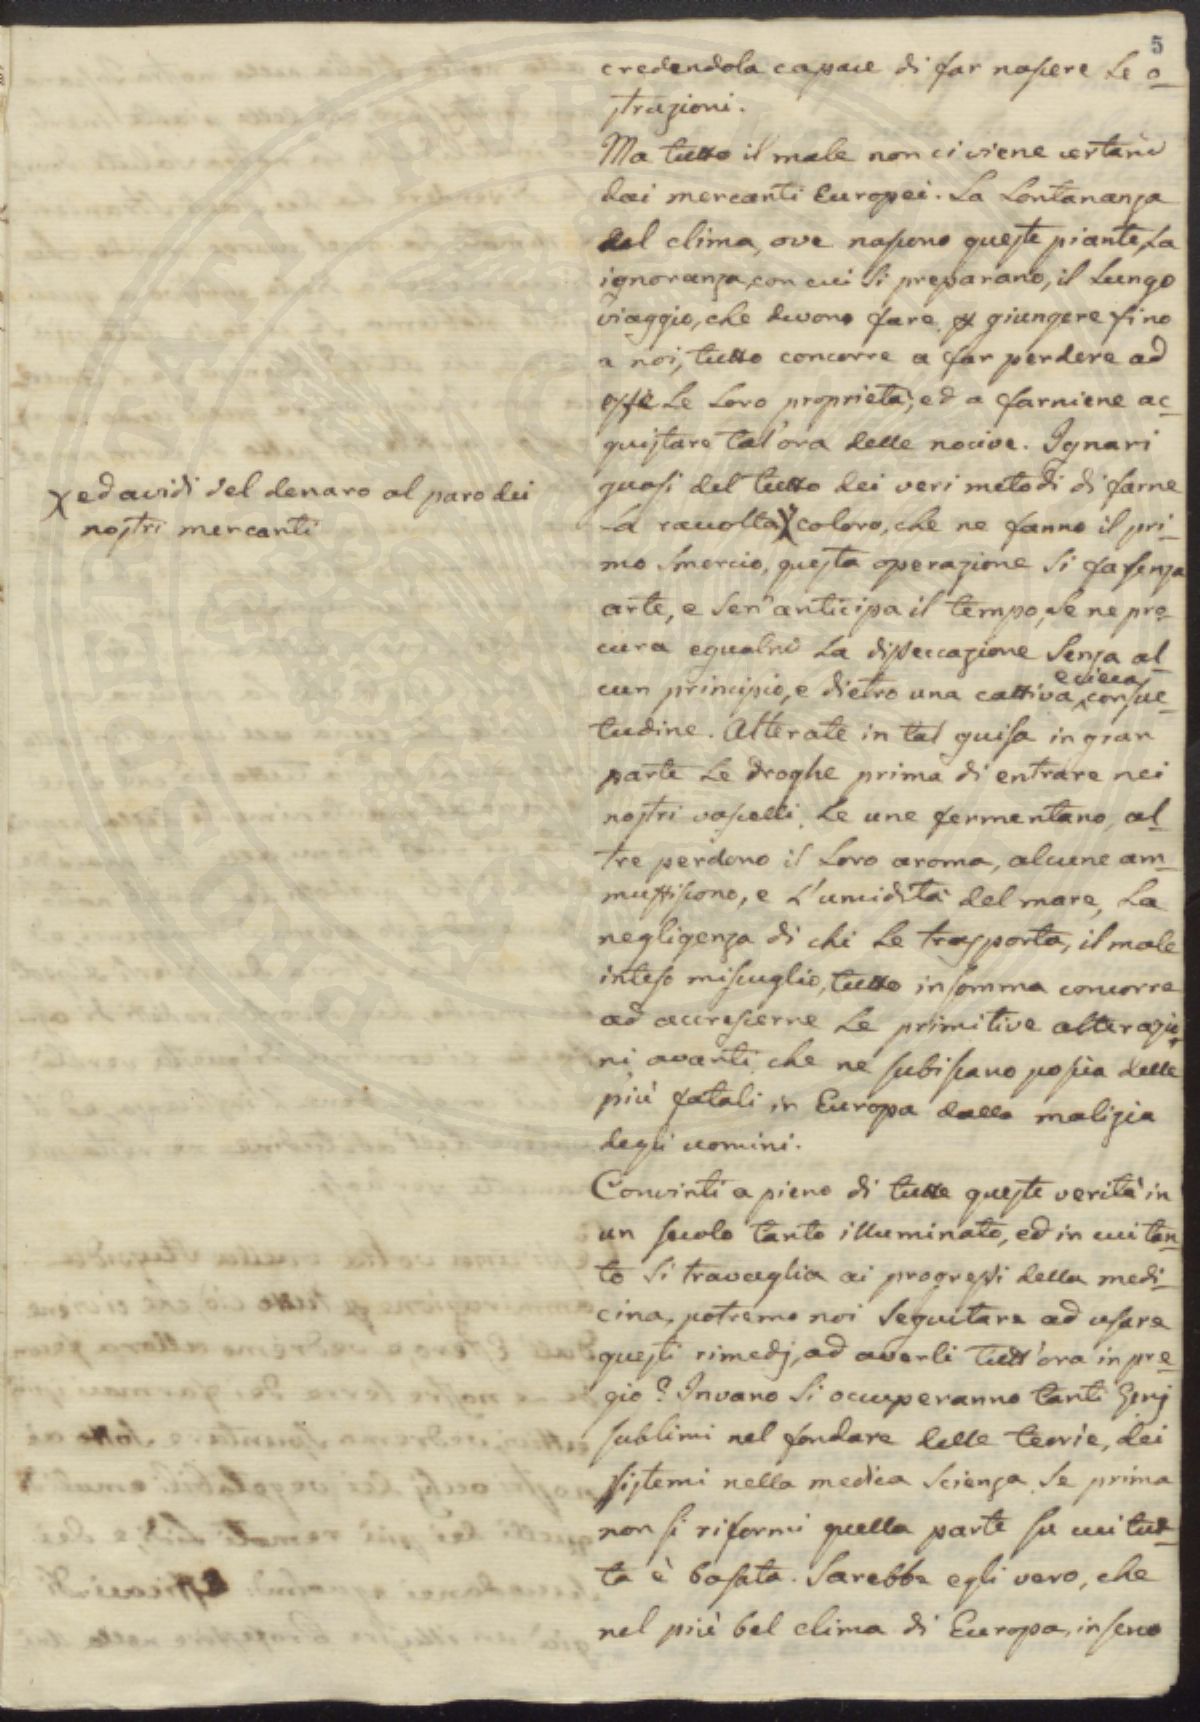 5
credendola capace di far nascere le o-
struzioni.
Ma tutto il male non ci viene certam̄
dai mercanti Europei. La lontananza
del clima, ove nascono queste piante, la
ignoranza, con cui si preparano, il lungo
viaggio, che devono fare giungere fino
a noi, tutto concorre a far perdere ad
esse le loro proprietà, ed a farniene ac-
quistare tal'ora delle nocive. Ignari
quasi del tutto dei veri metodi di farne
la raccolta X coloro, che ne fanno il pri-
mo smercio, questa operazione si fa senza
arte, e sen'anticipa il tempo, se ne pro-
cura egualm̄ la disseccazione senza al-
cun principio, e dietro una cattiva, e cieca consue-
tudine. Alterate in tal guisa in gran
parte le droghe prima di entrare nei
nostri vascelli, le une fermentano, al-
tre perdono il loro aroma, alcune am-
muffiscono, e l'umidità del mare, la
negligenza di chi le trasporta, il male
inteso miscuglio, tutto insomma concorre
ad accrescerne le primitive alterazio-
ni avanti, che ne subiscano poscia delle
più fatali in Europa dalla malizia
degli uomini.
Convinti a pieno di tutte queste verità in
un secolo tanto illuminato, ed in cui tan-
to si travaglia ai progressi della medi-
cina, potremo noi seguitare ad usare
questi rimedj, ad averli tutt'ora in pre-
gio? Invano si occuperanno tanti Genj
sublimi nel fondare delle teorie, dei
sistemi nella medica scienza, se prima
non si riformi quella parte su cui tut-
ta è basata. Sarebbe egli vero, che
nel più bel clima di Europa, in seno
X ed avidi del denaro al paro dei
nostri mercanti